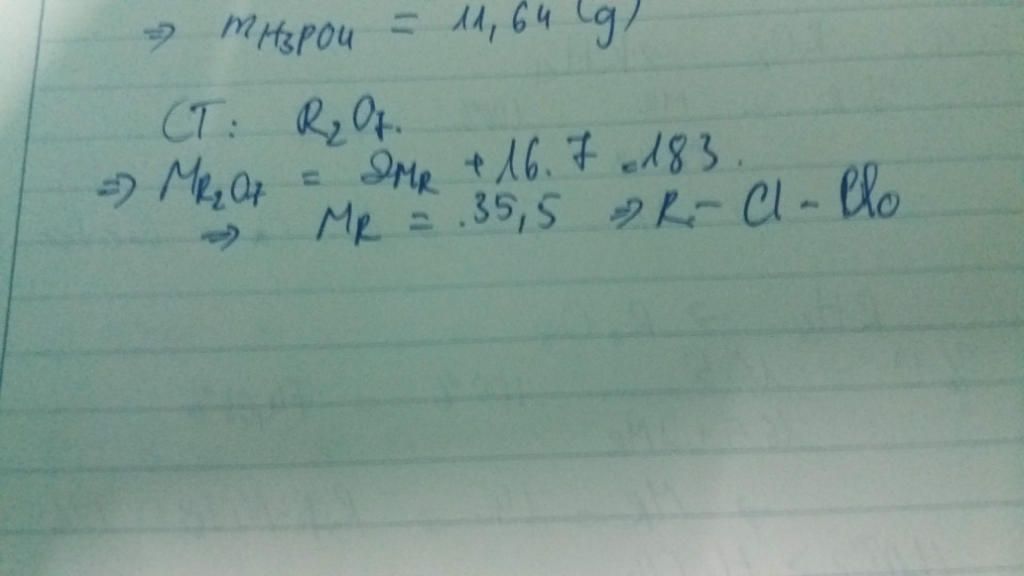 => mH3PO4 = 11,64 (g)
CT: R2O7.
=> MR2O7 = 2MR + 16.7 = 183.
=> MR = .35,5 => R - Cl - Clo